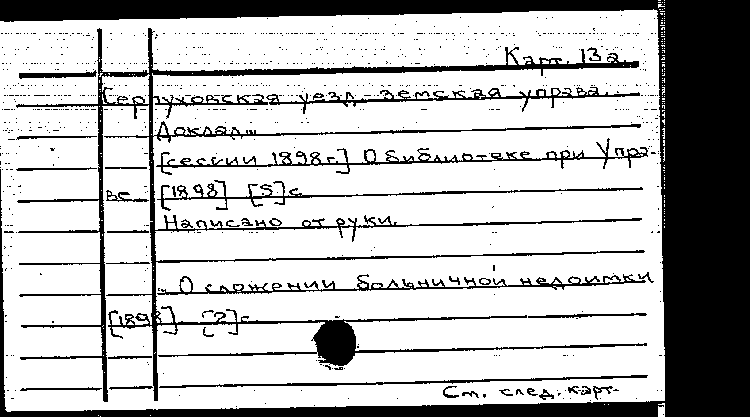 Карт. 13а.
Серпуховская уезд. земская управа.
Доклад...
[сессии 1898г.] О библиотеке при Упра-
ве [1898] [5]с
Написано от руки.
- О сложении больничной недоимки
[1898] [2]с
См. след. карт.